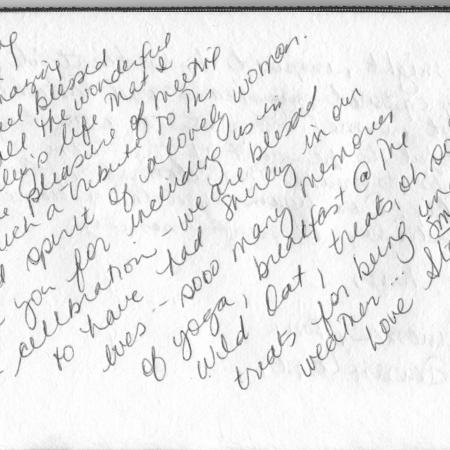 amazing
feel blessed
all the wonderful
life that I
the pleasure of meeting
such a tribute to the
spirit of a lovely woman.
you for including us in
celebration - we are blessed
to have had Shirley in our
lives -- sooo many memories
of yoga, breakfast @ the
Wild Oat, treats, oh so
treats for being in
weather...
Love